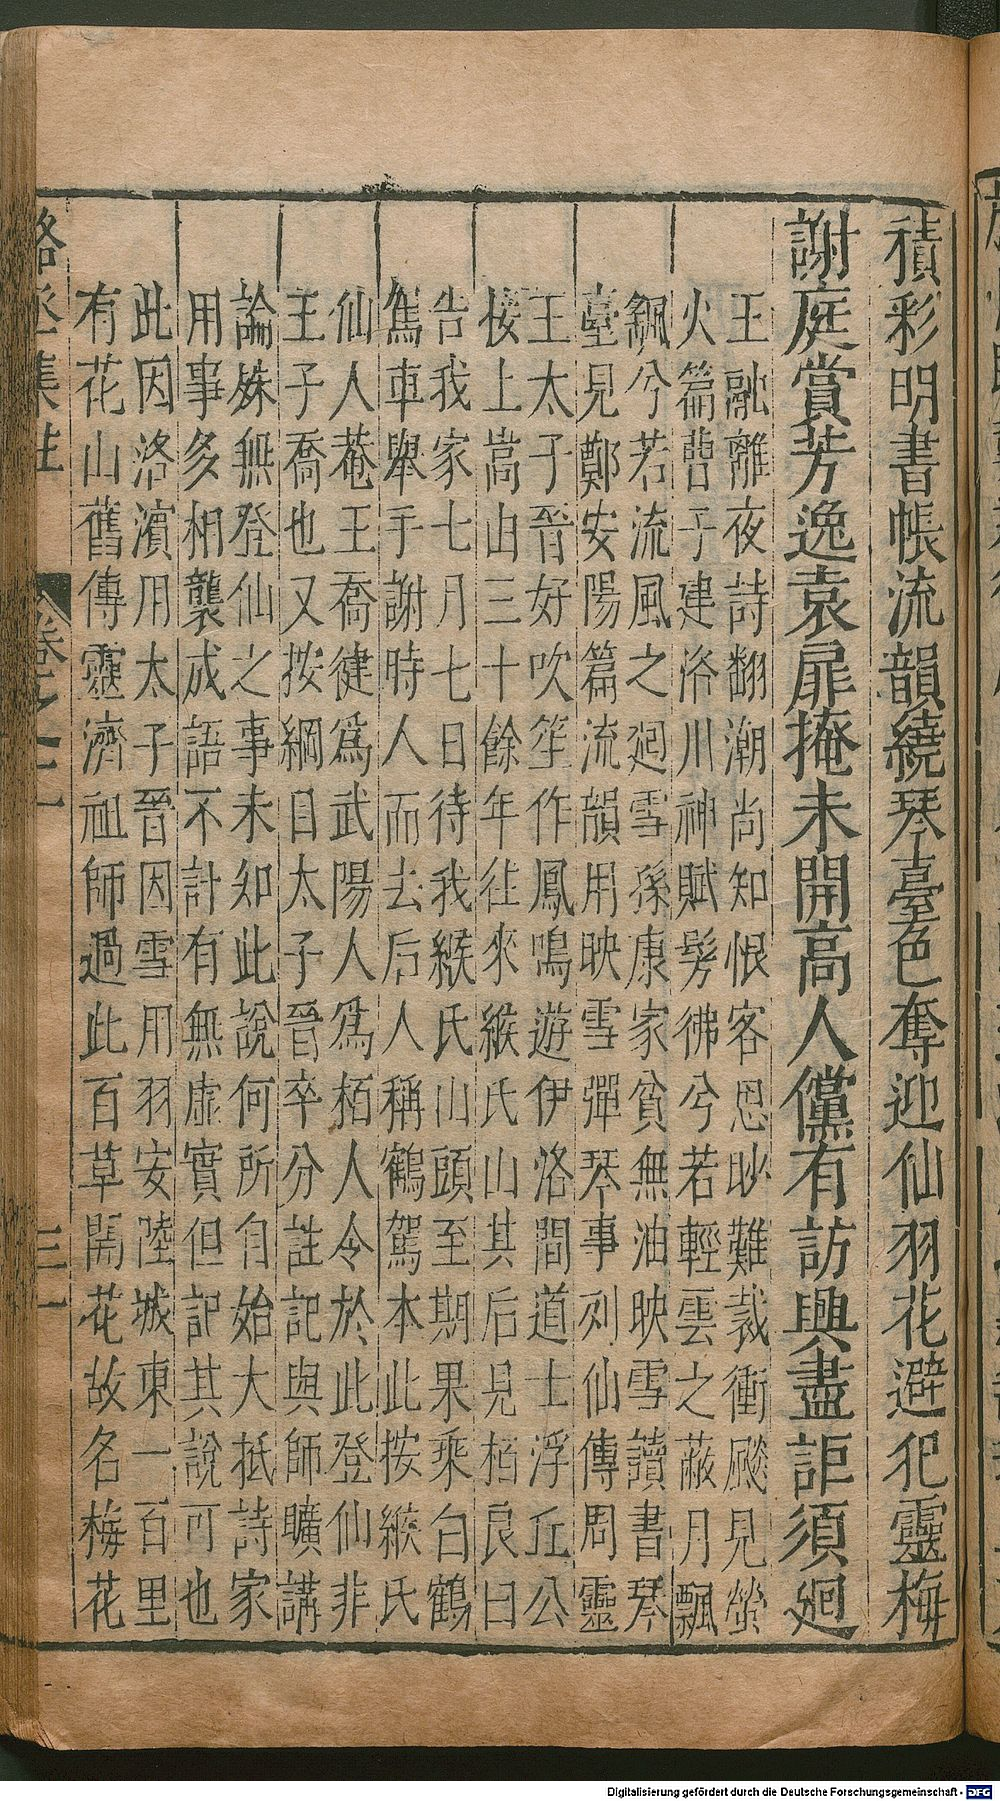 積彩明書帳流韻繞琴臺色奪迎仙羽花避犯靈梅
謝庭賞芳逸袁扉掩未開高人儻有訪興盡詎須廻
王融離夜詩翻潮尚知恨客思眇難裁衝飈見螢
火篇曹子建洛川神賦髣彿兮若輕雲之蔽月飄
飄兮若流風之廻雪孫康家貧無油映雪讀書琴
臺見鄭安陽篇流韻用映雪彈琴事列仙傳周靈
王太子晉好吹笙作鳳鳴遊伊洛間道士浮丘公
接上嵩山三十餘年往來緱氏山其后見栢良曰
告我家七月七日待我緱氏山頭至期果乘白鶴
駕車舉手謝時人而去后人稱鶴駕本此按緱氏
仙人菴王喬健爲武陽人爲栢人令於此登仙非
王子喬也又按綱目太子晉卒分註記與師曠講
論姝無登仙之事未知此說何所自始大抵詩家
用事多相襲成語不計有無虛實但記其說可也
此因洛濱用太子晉因雪用羽安陸城東一百里
有花山舊傳靈濟祖師過此百草開花故名梅花
駱丞集註
卷之一
三一
Digitalisierung gefördert durch die Deutsche Forschungsgemeinschaft - DFG